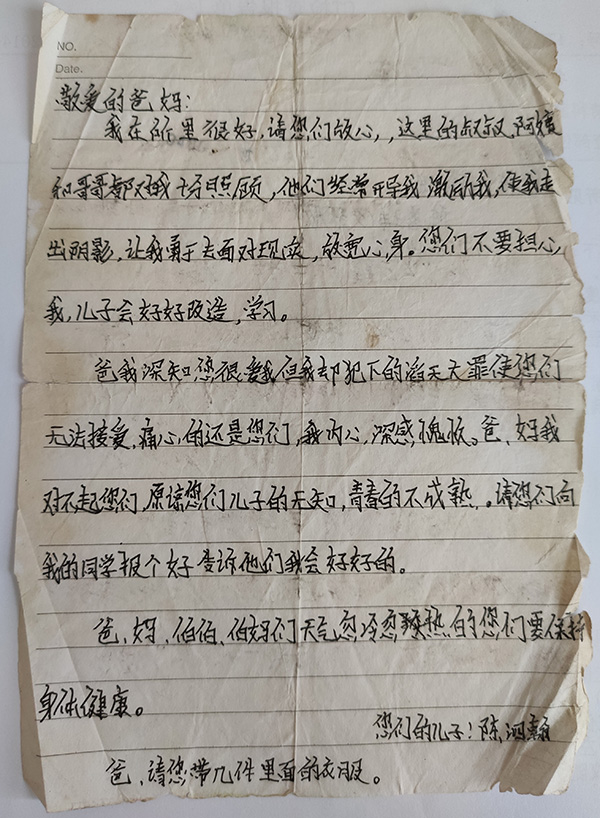 NO.
Date.
敬爱的爸妈：
我在所里很好，请您们放心，，这里的叔叔、阿姨
和哥哥都对我十分照顾，他们经常开导我激励我，使我走
出阴影，让我勇于去面对现实，放宽心身。您们不要担心
我，儿子会好好改造，学习。
爸我深知您很爱我但我却犯下的滔天大罪使您们
无法接受，痛心的还是您们，我内心，深感愧疚。爸、妈我
对不起您们，原谅您们儿子的无知，青春的不成熟，。请您们向
我的同学报个好告诉他们我会好好的。
爸、妈、伯伯、伯妈们天气忽冷忽热的您们要保持
身体健康。
您们的儿子：陈泗翰
爸、请您带几件里面的衣服。